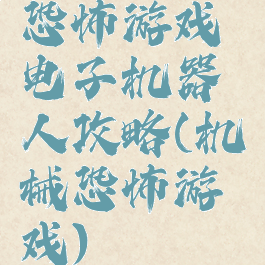 恐怖游戏
电子机器
人攻略(机
械恐怖游
戏)